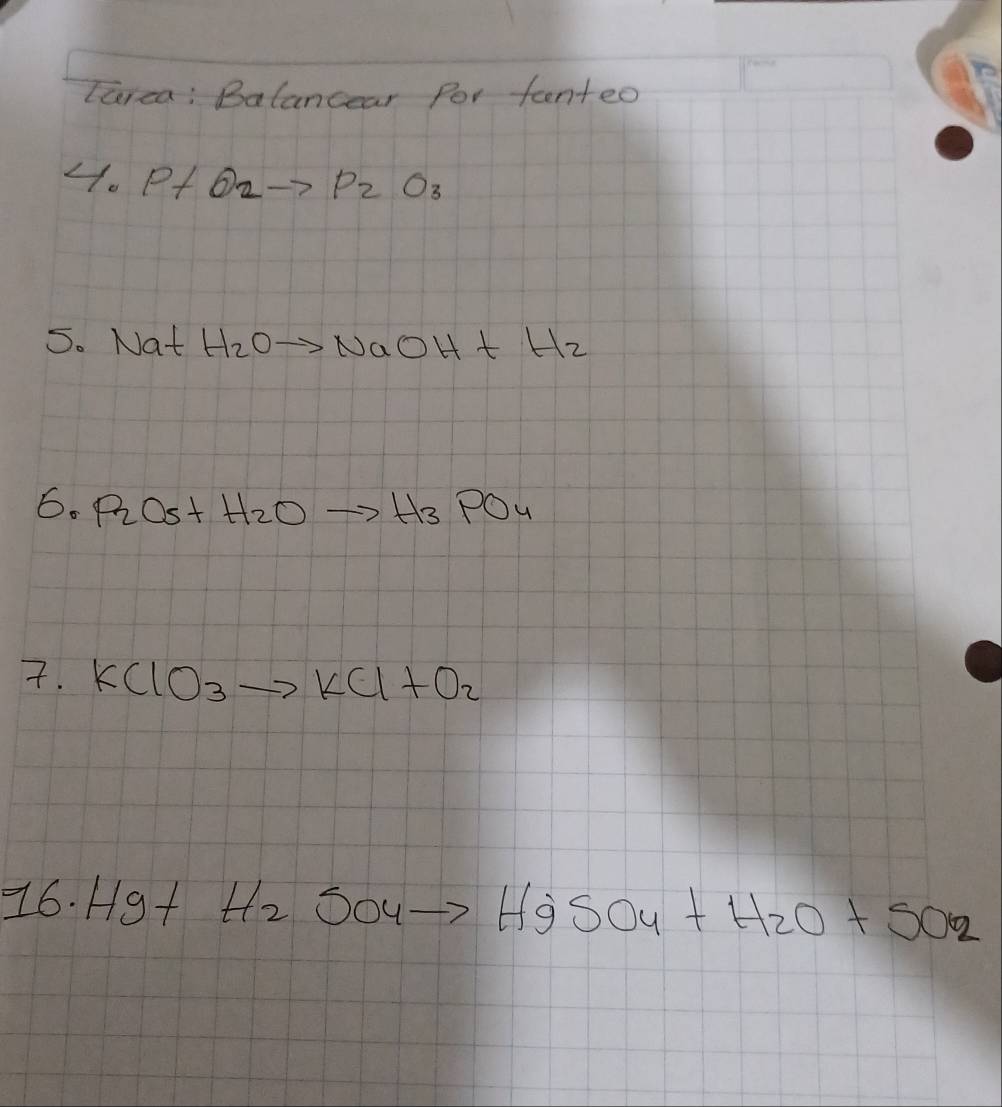 Tarea: Balancear Por tanteo
4. P + O2 → P2 O3
5. Na + H2O → NaOH + H2
6. P2O5 + H2O → H3 PO4
7. KClO3 → KCl + O2
16. Hg + H2 SO4 → HgSO4 + H2O + SO2